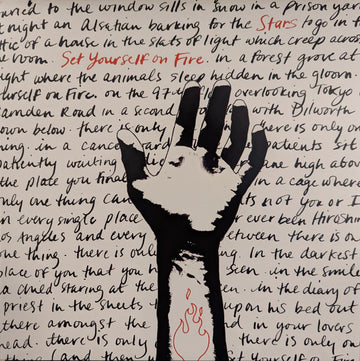 to the window sills in snow in a prison yard
at night an Alsatian barking for the Stars to go in t
of a house in the slats of light which creep across
room. Set Yourself on Fire. in a forest grove at
ight where the animals sleep hidden in the gloom.
urself on Fire. on the 97th overlooking Tokyo
amden Road in a second with Dilworth
own below. there is only there is only on
ing. in a cance ard patients sit
patiently waiting di ne high above
the place you final in a cage where
nly one thing can ts not you or I
in every single place r ever been Hiroshim
os Angeles and every etween there is o
one thing. there is only ng. In the darkest
place of you that you h seen. in the smile
a child staring at the in the diary of
priest in the sheets upon his bed out
there amongst the d in your lovers
head. there is only there is only o
thing (and then